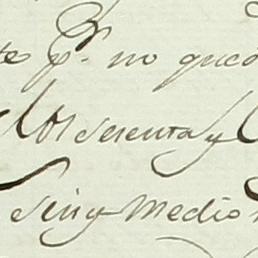 te p.r no qued
los sesenta y
sin y medio